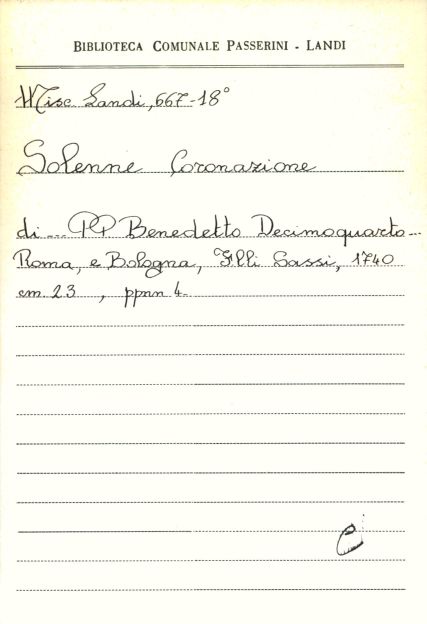 BIBLIOTECA COMUNALE PASSERINI - LANDI
Misc. Landi, 667-18°
Solenne Coronazione
di... PP Benedetto Decimoquarto...
Roma, e Bologna, F.lli Sassi, 1740
cm 23 , ppnn 4
e